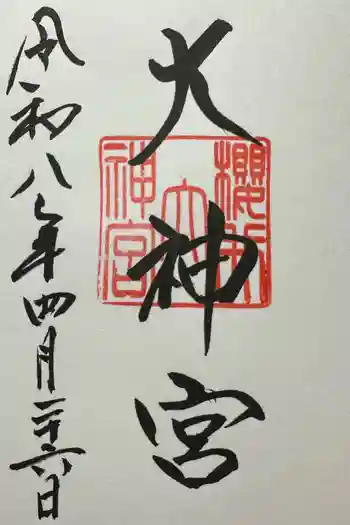 大神宮
櫻新
大
神宮
令和八年四月二十六日